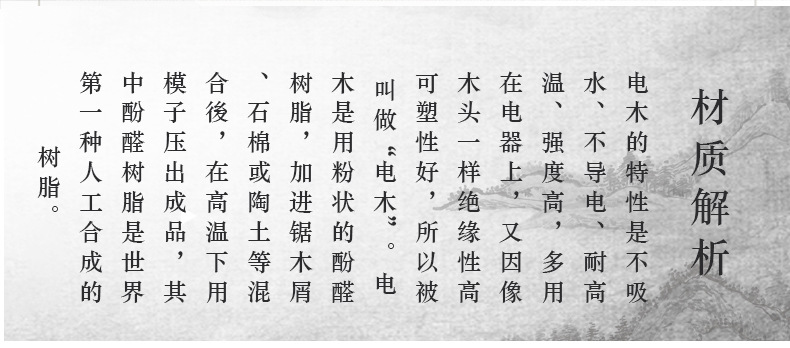 材质解析
电木的特性是不吸
水、不导电、耐高
温、强度高，多用
在电器上，又因像
木头一样绝缘性高
可塑性好，所以被
叫做“电木”。电
木是用粉状的酚醛
树脂，加进锯木屑
、石棉或陶土等混
合後，在高温下用
模子压出成品，其
中酚醛树脂是世界
第一种人工合成的
树脂。